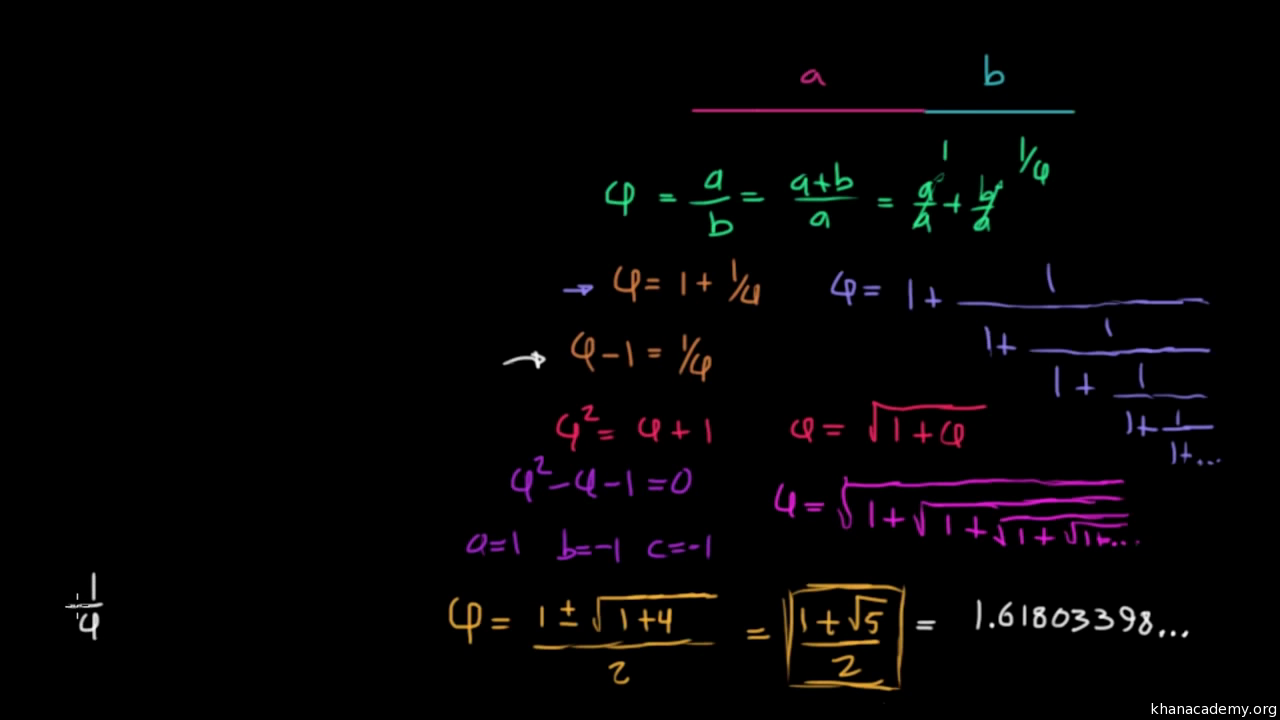 a b
φ = a/b = (a+b)/a = a/a + b/a
1 1/φ
φ = 1 + 1/φ
φ = 1 + 1/(1 + 1/(1 + 1/(1 + 1/(1+...
φ - 1 = 1/φ
φ² = φ + 1
φ = √(1+φ)
φ² - φ - 1 = 0
φ = √(1 + √(1 + √(1 + √(1+...
a=1 b=-1 c=-1
1/φ
φ = (1 ± √(1+4))/2 = (1+√5)/2 = 1.61803398...
khanacademy.org